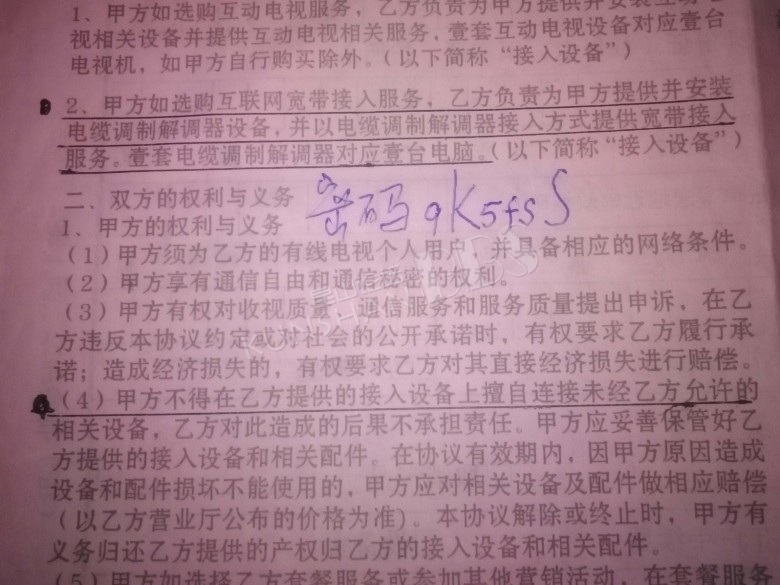 1、甲方如选购互动电视服务，乙方负责为甲方提供并安装互动电
视相关设备并提供互动电视相关服务，壹套互动电视设备对应壹台
电视机，如甲方自行购买除外。（以下简称“接入设备”）
2、甲方如选购互联网宽带接入服务，乙方负责为甲方提供并安装
电缆调制解调器设备，并以电缆调制解调器接入方式提供宽带接入
服务。壹套电缆调制解调器对应壹台电脑。（以下简称“接入设备”）
二、双方的权利与义务
密码 qK5fsS
1、甲方的权利与义务
（1）甲方须为乙方的有线电视个人用户，并具备相应的网络条件。
（2）甲方享有通信自由和通信秘密的权利。
（3）甲方有权对收视质量、通信服务和服务质量提出申诉，在乙
方违反本协议约定或对社会的公开承诺时，有权要求乙方履行承
诺；造成经济损失的，有权要求乙方对其直接经济损失进行赔偿。
（4）甲方不得在乙方提供的接入设备上擅自连接未经乙方允许的
相关设备，乙方对此造成的后果不承担责任。甲方应妥善保管好乙
方提供的接入设备和相关配件。在协议有效期内，因甲方原因造成
设备和配件损坏不能使用的，甲方应对相关设备及配件做相应赔偿
（以乙方营业厅公布的价格为准）。本协议解除或终止时，甲方有
义务归还乙方提供的产权归乙方的接入设备和相关配件。
（5）甲方如选择乙方套餐服务或参加其他营销活动，在套餐服务